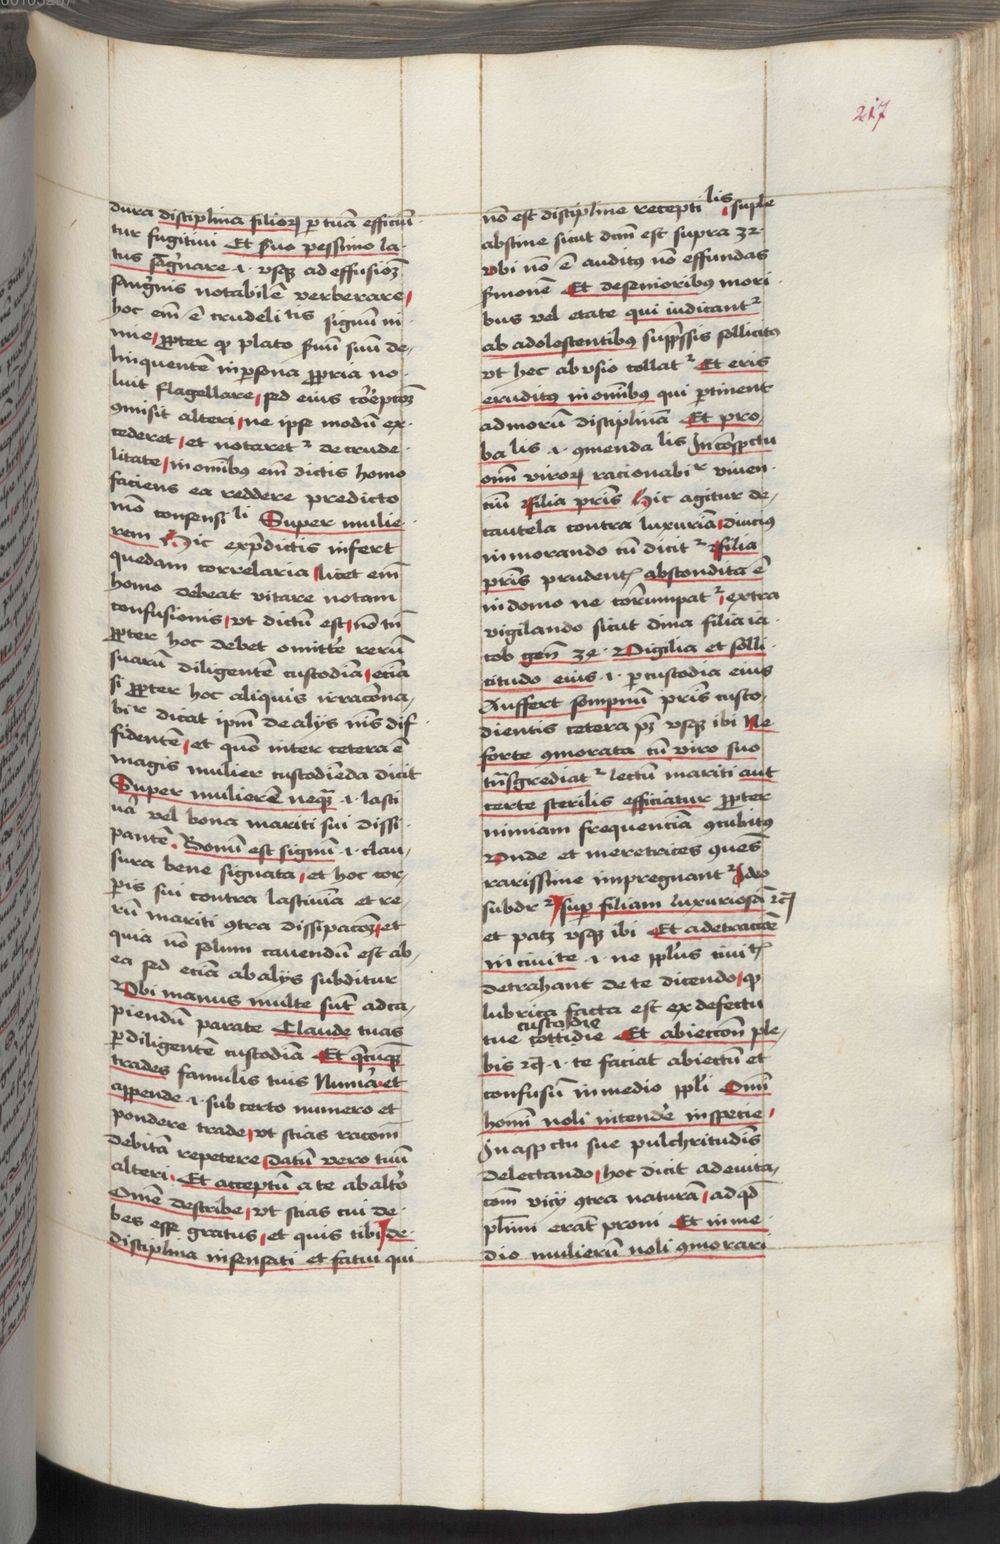 217
dura disciplina filioꝝ ꝑ tuā efficiūt
tur fugitiui Et suo pessimo la
tus sāgͥnare .i. vsqꝫ ad effusionē
sangͥnis notabilē verberare
hoc em̄ ē crudelitatis signū ni
mie ꝓpter qꝫ plato seruū suū de
linquentē in ꝑsona ꝓpria no
luit flagellare sed eius
ꝯmisit alteri ne ipse modū ex
cederet et notaretᷣ de crude
litate in omībus em̄ dictis homo
faciens ea reddere predicto
mō consensibili Super mulie
rem Hic ex p̄dictis infert
quedam correlaria licet em̄
homo debeat vitare notam
confusionis vt dictū est nō tn̄
ꝓpter hoc debet omitte͛ rerū
suarū diligentē custodiā eciā
si ꝓpter hoc aliquis irracōna
bilr dicat ip̄m de alijs nīs dif
fidentē et quō inter cetera ē
magis mulier custodiēda dicit
Super mulierē neqꝫ .i. lasci
uā vel bona mariti sui dissi
pantē Bonū est signū .i. clau
sura bene signata et hoc cor
ꝑis sui contra lasciuiā et re
rū mariti ꝯtra dissipacōꝫ et
quia nō solum cauendū est ab
ea sed eciā ab alijs subditur
Vbi manus multe sūt ad ca
piendū parate Claude tuas
ꝑ diligentē custodiā Et qͣcūqꝫ
trades famulis tuis Numera et
appende .i. sub certo numero et
pondere trade vt scias racōm
debitā repetere Datū vero tuū
alteri Et acceptū a te ab alto
Omē describe vt scias cui de
bes esse gratus et quis tibi De
disciplina insensati et fatui qui
nō est discipline receptibilis suple
abstine sicut dcm̄ est supra 32
Vbi nō ē auditus nō effundas
sermonē Et de senioribus mori
bus vel etate qui iudicantᷣ
ab adolescentibus supp̄ssis sollicitus
vt hec abusio tollatᷣ Et eris
eruditus in omībus qui ꝑtinent
ad morū disciplinā Et pro
babilis .i. ꝯmendabilis In cōspectu
om̄ viroꝝ racionabilr viuen
ciū Filia pr̄is Hic agitur de
cautela contra luxuriā
in morando cū dicitᷣ Filia
pr̄is prudentꝭ abscondita ē
in domo ne corrumpatᷣ extra
vigilando sicut dina filia ia
cob gen̄ 34 Vigilia et solli
citudo eius .i. ꝑ custodia eius
Auffert sompnū pr̄is custo
dientis cetera pꝫ vsqꝫ ibi Ne
forte ꝯmorata cū viro suo
tn̄sgrediatᷣ lectum mariti aut
certe sterilis efficiatur ꝓpter
nimiam frequenciā ꝯcubitus
Vnde et meretrices ꝯmes
rarissime impregnantᷣ Ideo
subdrᷣ suꝑ filiam luxuriosā ⁊cꝭ
et patꝫ vsqꝫ ibi Et a detractiōe
in ciuite .i. ne ppl̄us ciuitꝭ
detrahant de te dicendo qꝫ
lubrica facta est ex defectu
custodie
tue cottidie Et abieccōn ple
bis ⁊cꝭ .i. te faciat abiectū et
confusū in medio ppl̄i Omī
homī noli intende͛ in specie
In aspectu sue pulchritudīs
delectando hoc dicit ad euita
cōm vicij ꝯtra naturā ad qd̄
pl̄imi erāt proni Et in me
dio mulierū noli ꝯmorari